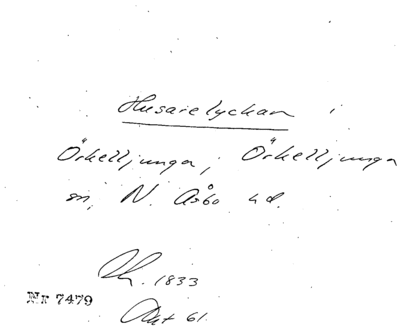 Husarelyckan i
Örkelljunga, Örkelljunga
sn, N. Åsbo hd.
Lk. 1833
Nr 7479
Akt 61.